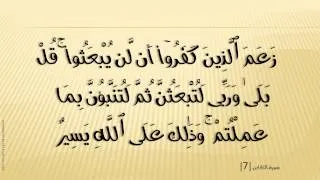 زَعَمَ ٱلَّذِينَ كَفَرُوٓا۟ أَن لَّن يُبْعَثُوا۟ ۚ قُلْ
بَلَىٰ وَرَبِّى لَتُبْعَثُنَّ ثُمَّ لَتُنَبَّؤُنَّ بِمَا
عَمِلْتُمْ ۚ وَذَٰلِكَ عَلَى ٱللَّهِ يَسِيرٌ
سورة التغابن |7|